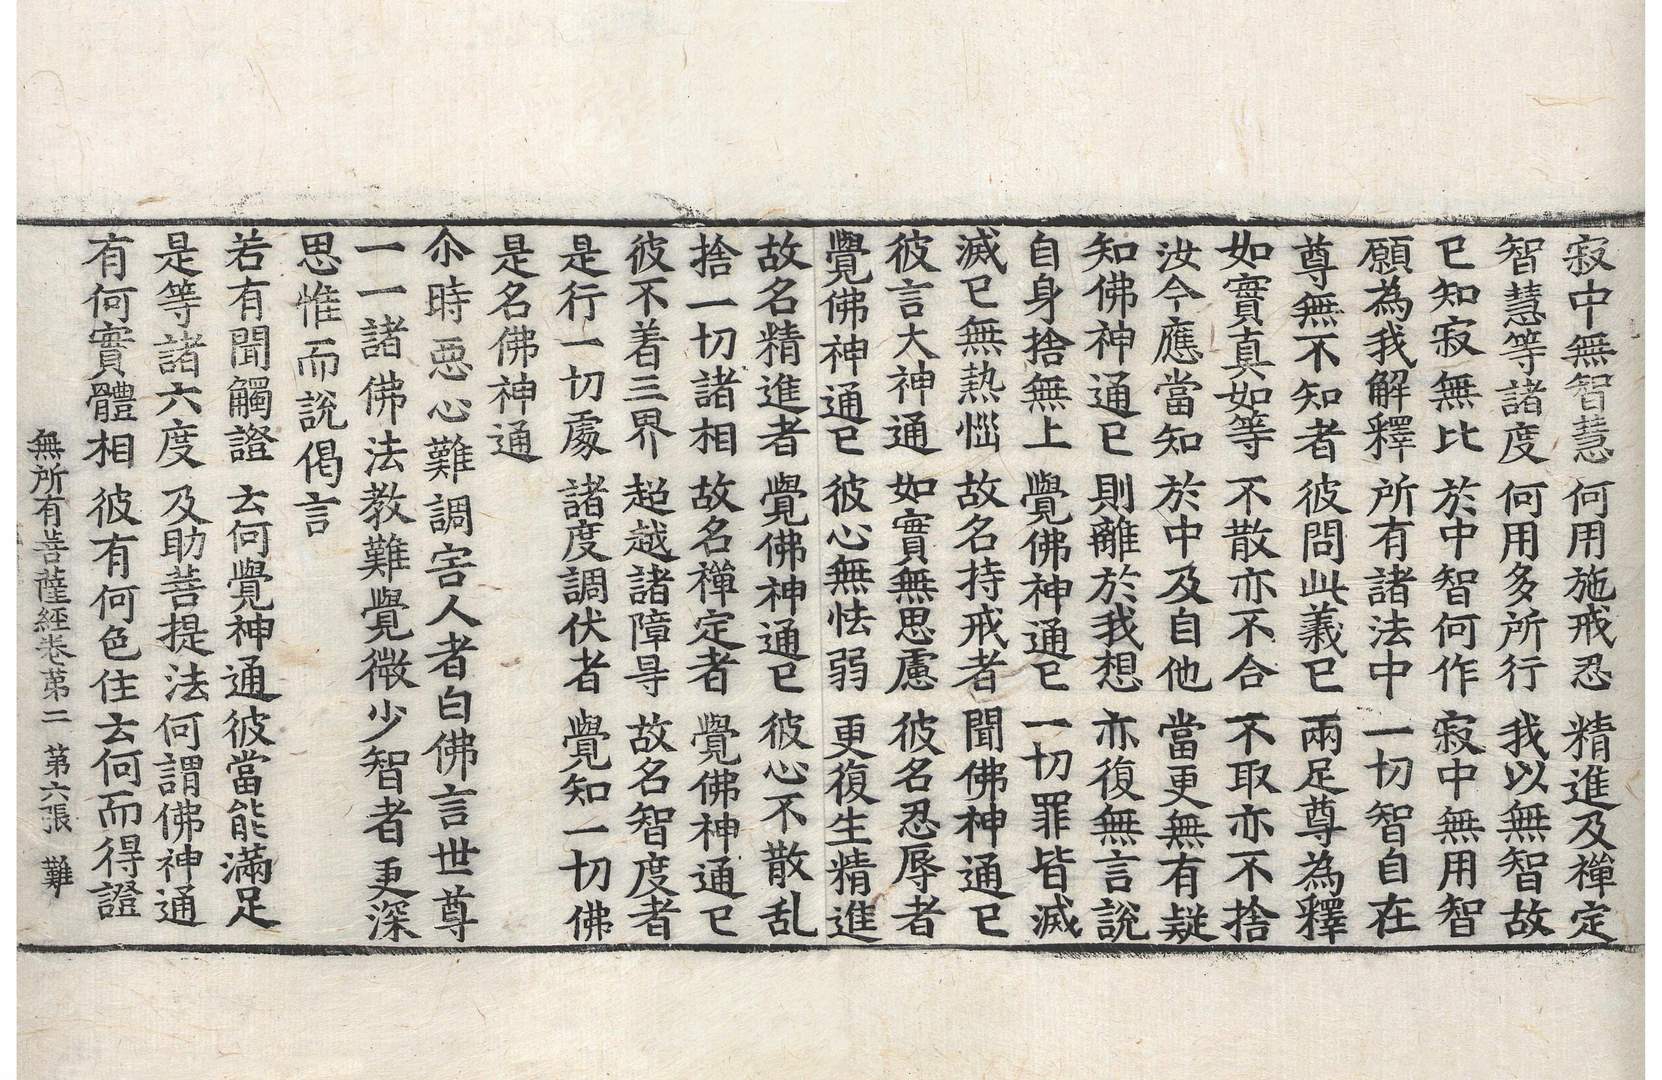 寂中無智慧 何用施戒忍 精進及禪定
智慧等諸度 何用多所行 我以無智故
已知寂無比 於中智何作 寂中無用智
願為我解釋 所有諸法中 一切智自在
尊無不知者 彼問此義已 兩足尊為釋
如實真如等 不散亦不合 不取亦不捨
汝今應當知 於中及自他 當更無有疑
知佛神通已 則離於我想 亦復無言說
自身捨無上 覺佛神通已 一切罪皆滅
滅已無熱惱 故名持戒者 聞佛神通已
彼言大神通 如實無思慮 彼名忍辱者
覺佛神通已 彼心無怯弱 更復生精進
故名精進者 覺佛神通已 彼心不散乱
捨一切諸相 故名禪定者 覺佛神通已
彼不着三界 超越諸障㝵 故名智度者
是行一切處 諸度調伏者 覺知一切佛
是名佛神通
尒時惡心難調害人者白佛言世尊
一一諸佛法教難覺微少智者更深
思惟而說偈言
若有聞觸證 去何覺神通 彼當能滿足
是等諸六度 及助菩提法 何謂佛神通
有何實體相 彼有何色住 去何而得證
無所有菩薩經卷第二 第六張 難